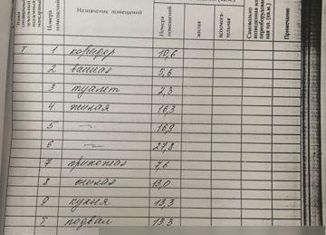 Номера помещений
Назначение помещений
Номера помещений
жилая
вспомога-тельная
Примечание
1 коридор 10,6
2 ванная 5,6
3 туалет 2,3
4 жилая 16,3
5 —"— 16,9
6 —"— 27,8
7 прихожая 7,6
8 жилая 13,0
9 кухня 13,3
подвал 13,3